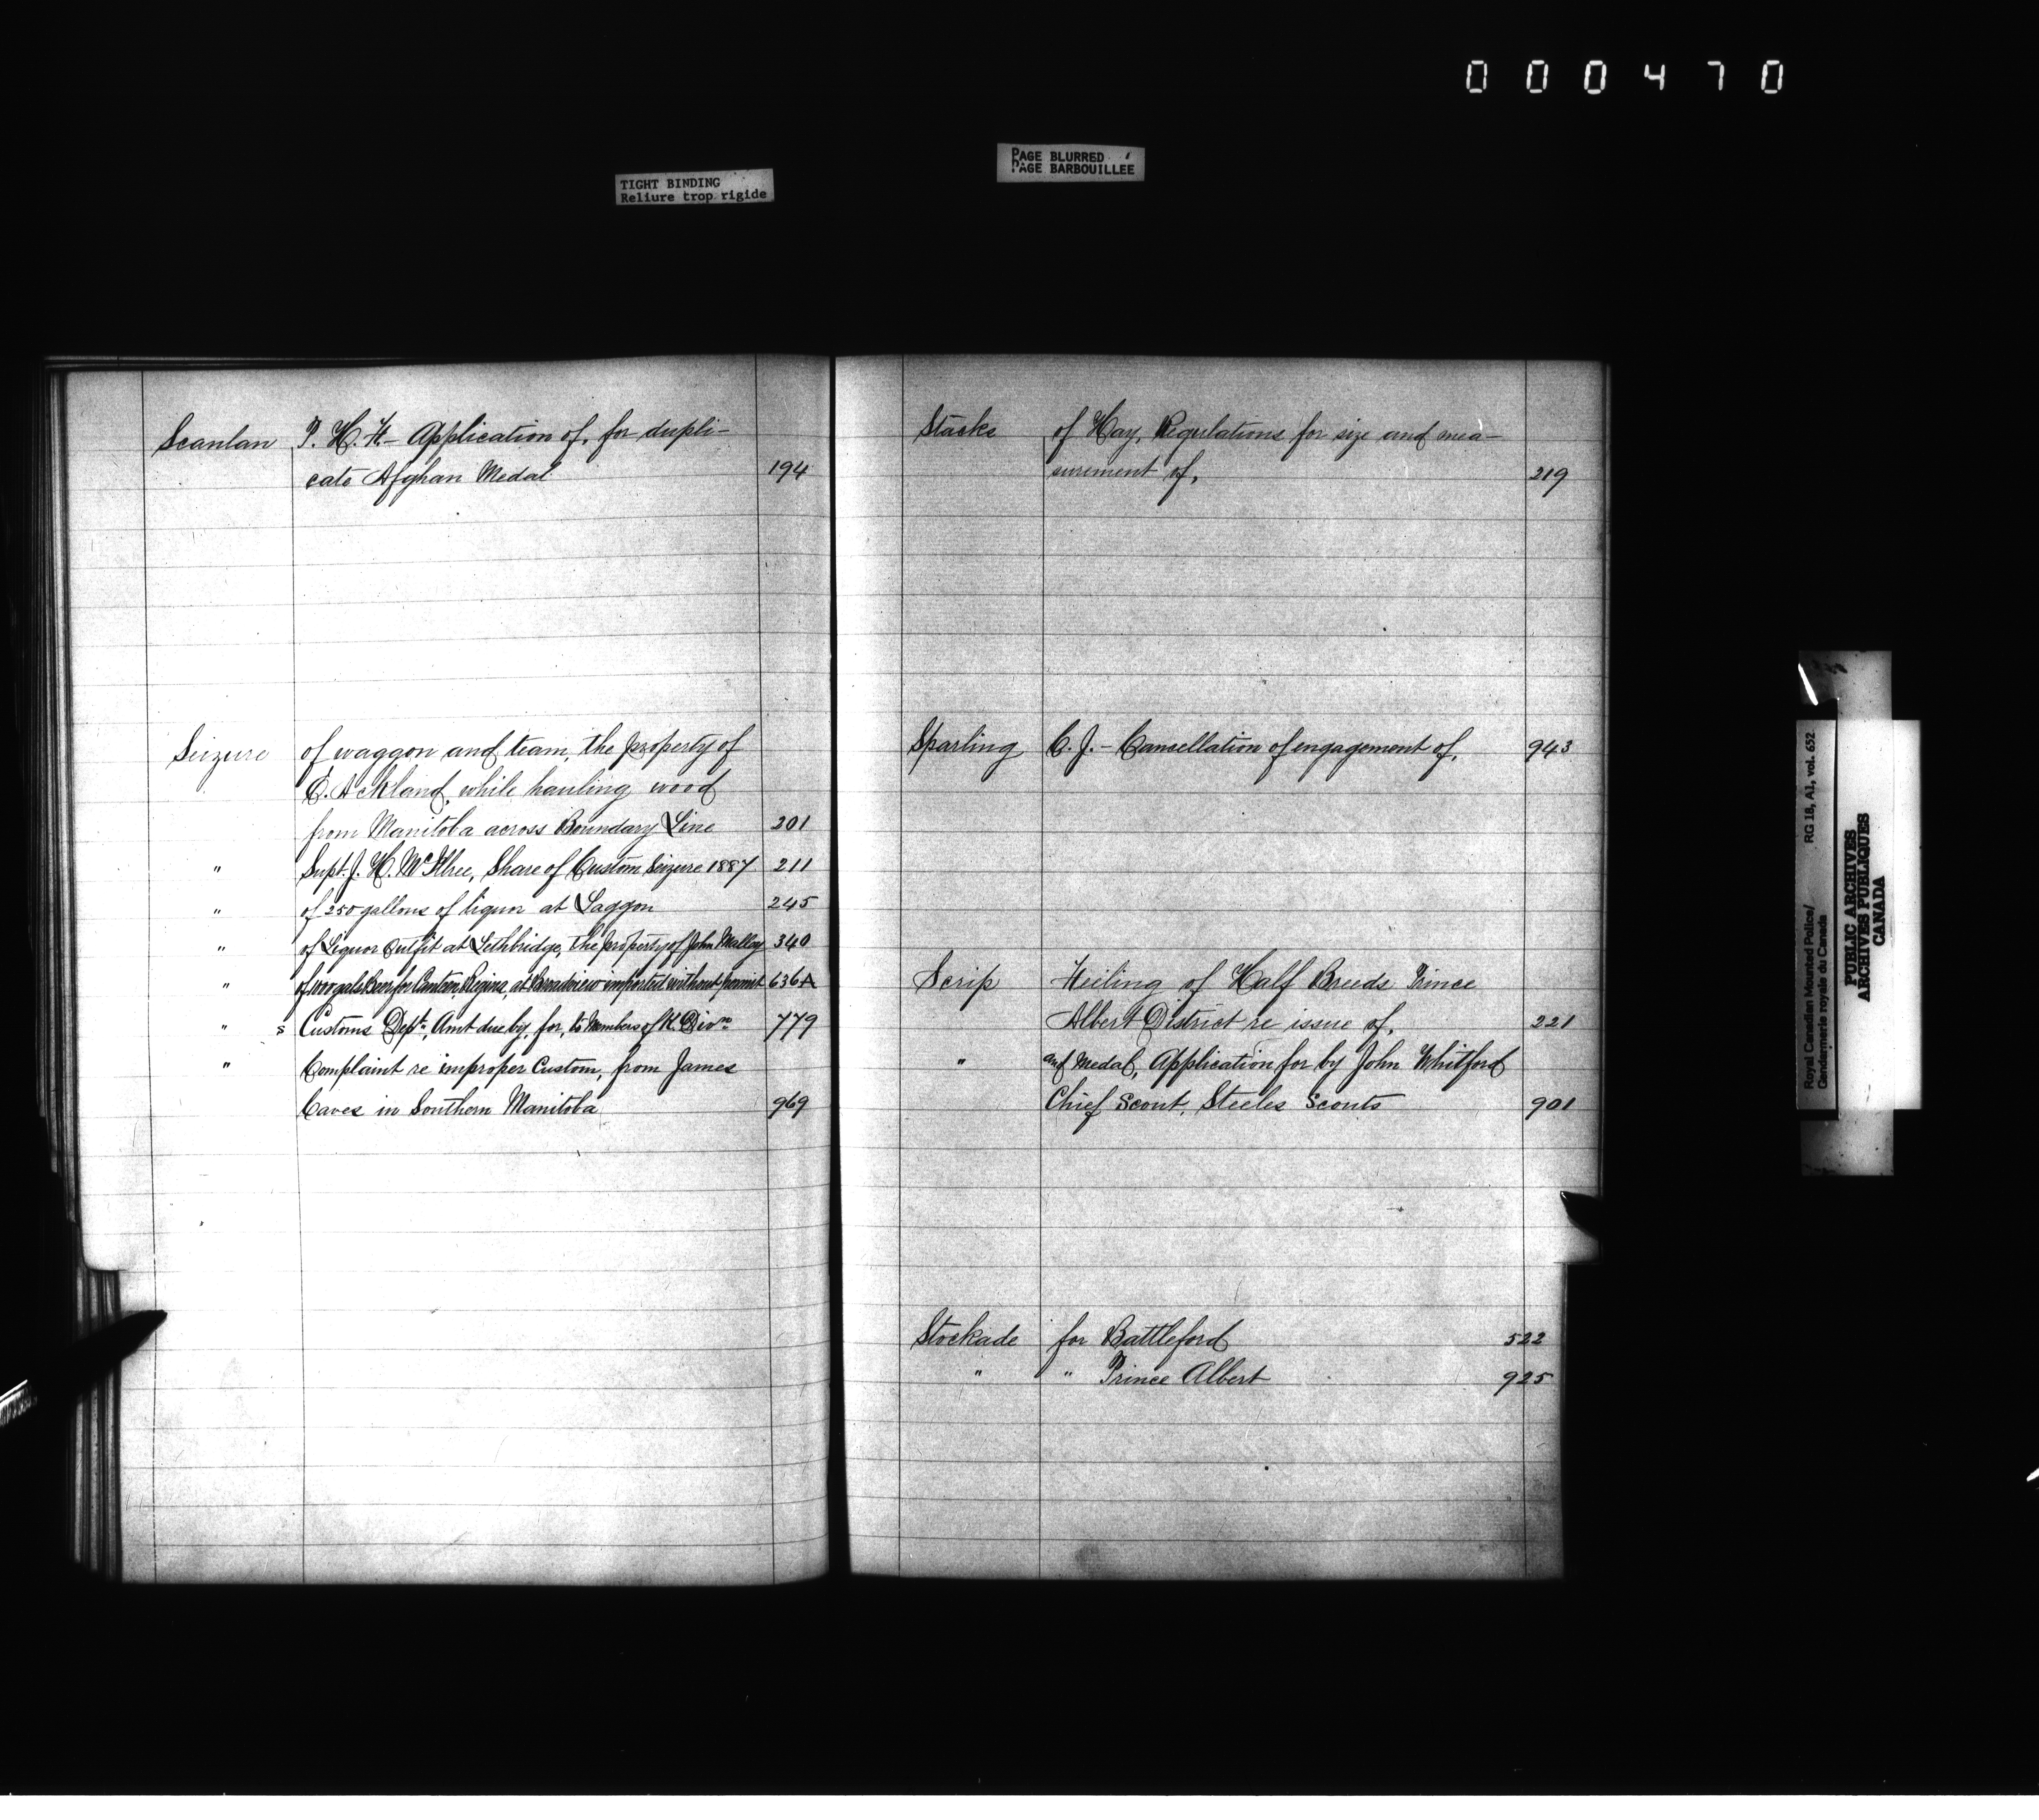 000470
TIGHT BINDING
Reliure trop rigide
PAGE BLURRED
PAGE BARBOUILLÉE
Scanlan P. H. F. - Application of, for dupli-
cate Afghan Medal 194
Seizure of waggon and team, the property of
E. Ackland, while hauling wood
from Manitoba across Boundary Line 201
" Supt. J. H. McIllree, Share of Custom Seizure 1887 211
" of 250 gallons of liquor at Laggon 245
" of Liquor Outfit at Lethbridge, the property of John Malloy 340
" of 1000 gals Beer for Canteen, Regina, at Broadview imported without permit 636A
" s Customs Dept., Amt due by, for, to Members of K. Divn 779
" Complaint re improper Custom, from James
Caves in Southern Manitoba 969
Stacks of Hay, Regulations for size and mea-
surement of, 219
Sparling C. J. - Cancellation of engagement of, 943
Scrip Feeling of Half Breeds Prince
Albert District re issue of, 221
" and Medal, Application for by John Whitford
Chief Scout, Steeles Scouts 901
Stockade for Battleford 522
" " Prince Albert 925
Royal Canadian Mounted Police/ RG 18, A1, vol. 652
Gendarmerie royale du Canada
PUBLIC ARCHIVES
ARCHIVES PUBLIQUES
CANADA